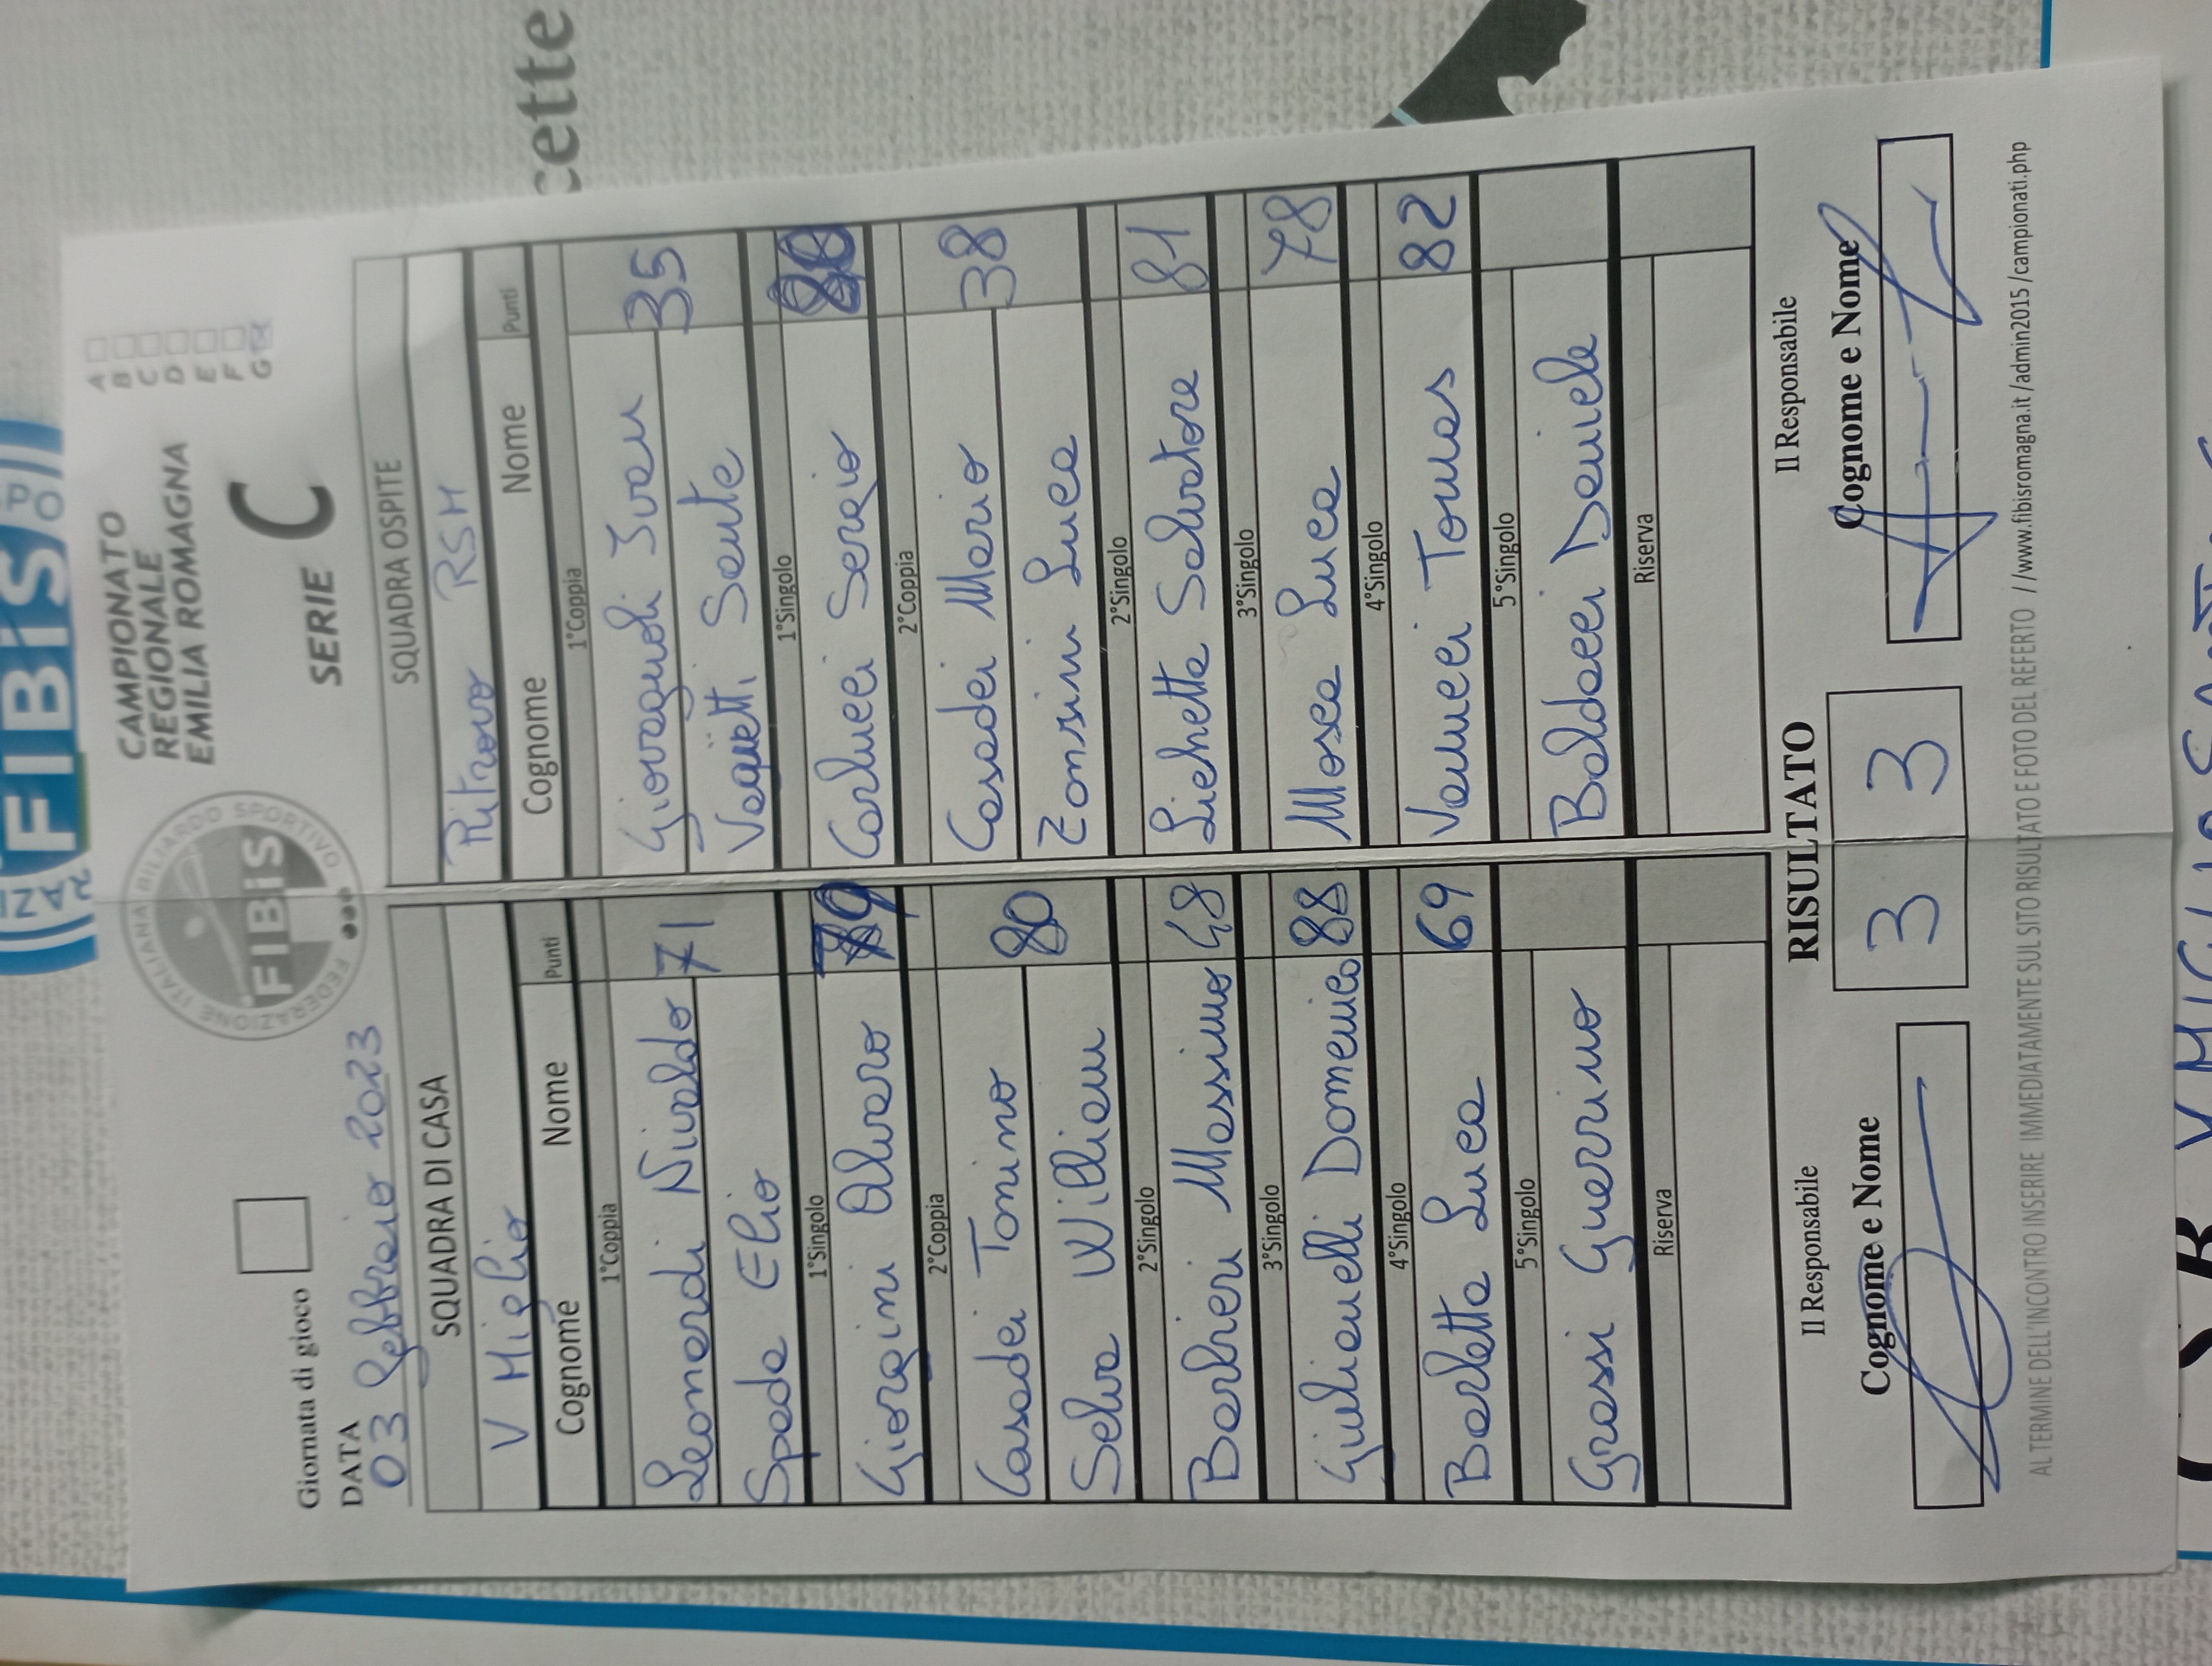 cette
FIBiS
FEDERAZIONE ITALIANA BILIARDO SPORTIVO
FIBiS
CAMPIONATO
REGIONALE
EMILIA ROMAGNA
SERIE C
A
B
C
D
E
F
G
Giornata di gioco
DATA
03 Febbraio 2023
SQUADRA DI CASA SQUADRA OSPITE
V Miglio Ritrovo RSM
Cognome Nome Punti Cognome Nome Punti
1°Coppia 1°Coppia
Leonardi Nivaldo 71 Giovagnoli Ivan 35
Spada Elio Vagnetti Sante
1°Singolo 1°Singolo
Giorgini Alvaro Carlucci Sergio
2°Coppia 2°Coppia
Casadei Tonino 80 Casadei Mario 38
Selva William Zonzini Luca
2°Singolo 2°Singolo
Barbieri Massimo 48 Lichetta Salvatore 81
3°Singolo 3°Singolo
Giulianelli Domenico 88 Mosca Luca 78
4°Singolo 4°Singolo
Barletta Luca 69 Vannucci Tomas 82
5°Singolo 5°Singolo
Grassi Guerrino Baldacci Daniele
Riserva Riserva
Il Responsabile RISULTATO Il Responsabile
Cognome e Nome 3 3 Cognome e Nome
AL TERMINE DELL'INCONTRO INSERIRE IMMEDIATAMENTE SUL SITO RISULTATO E FOTO DEL REFERTO //www.fibisromagna.it/admin2015/campionati.php